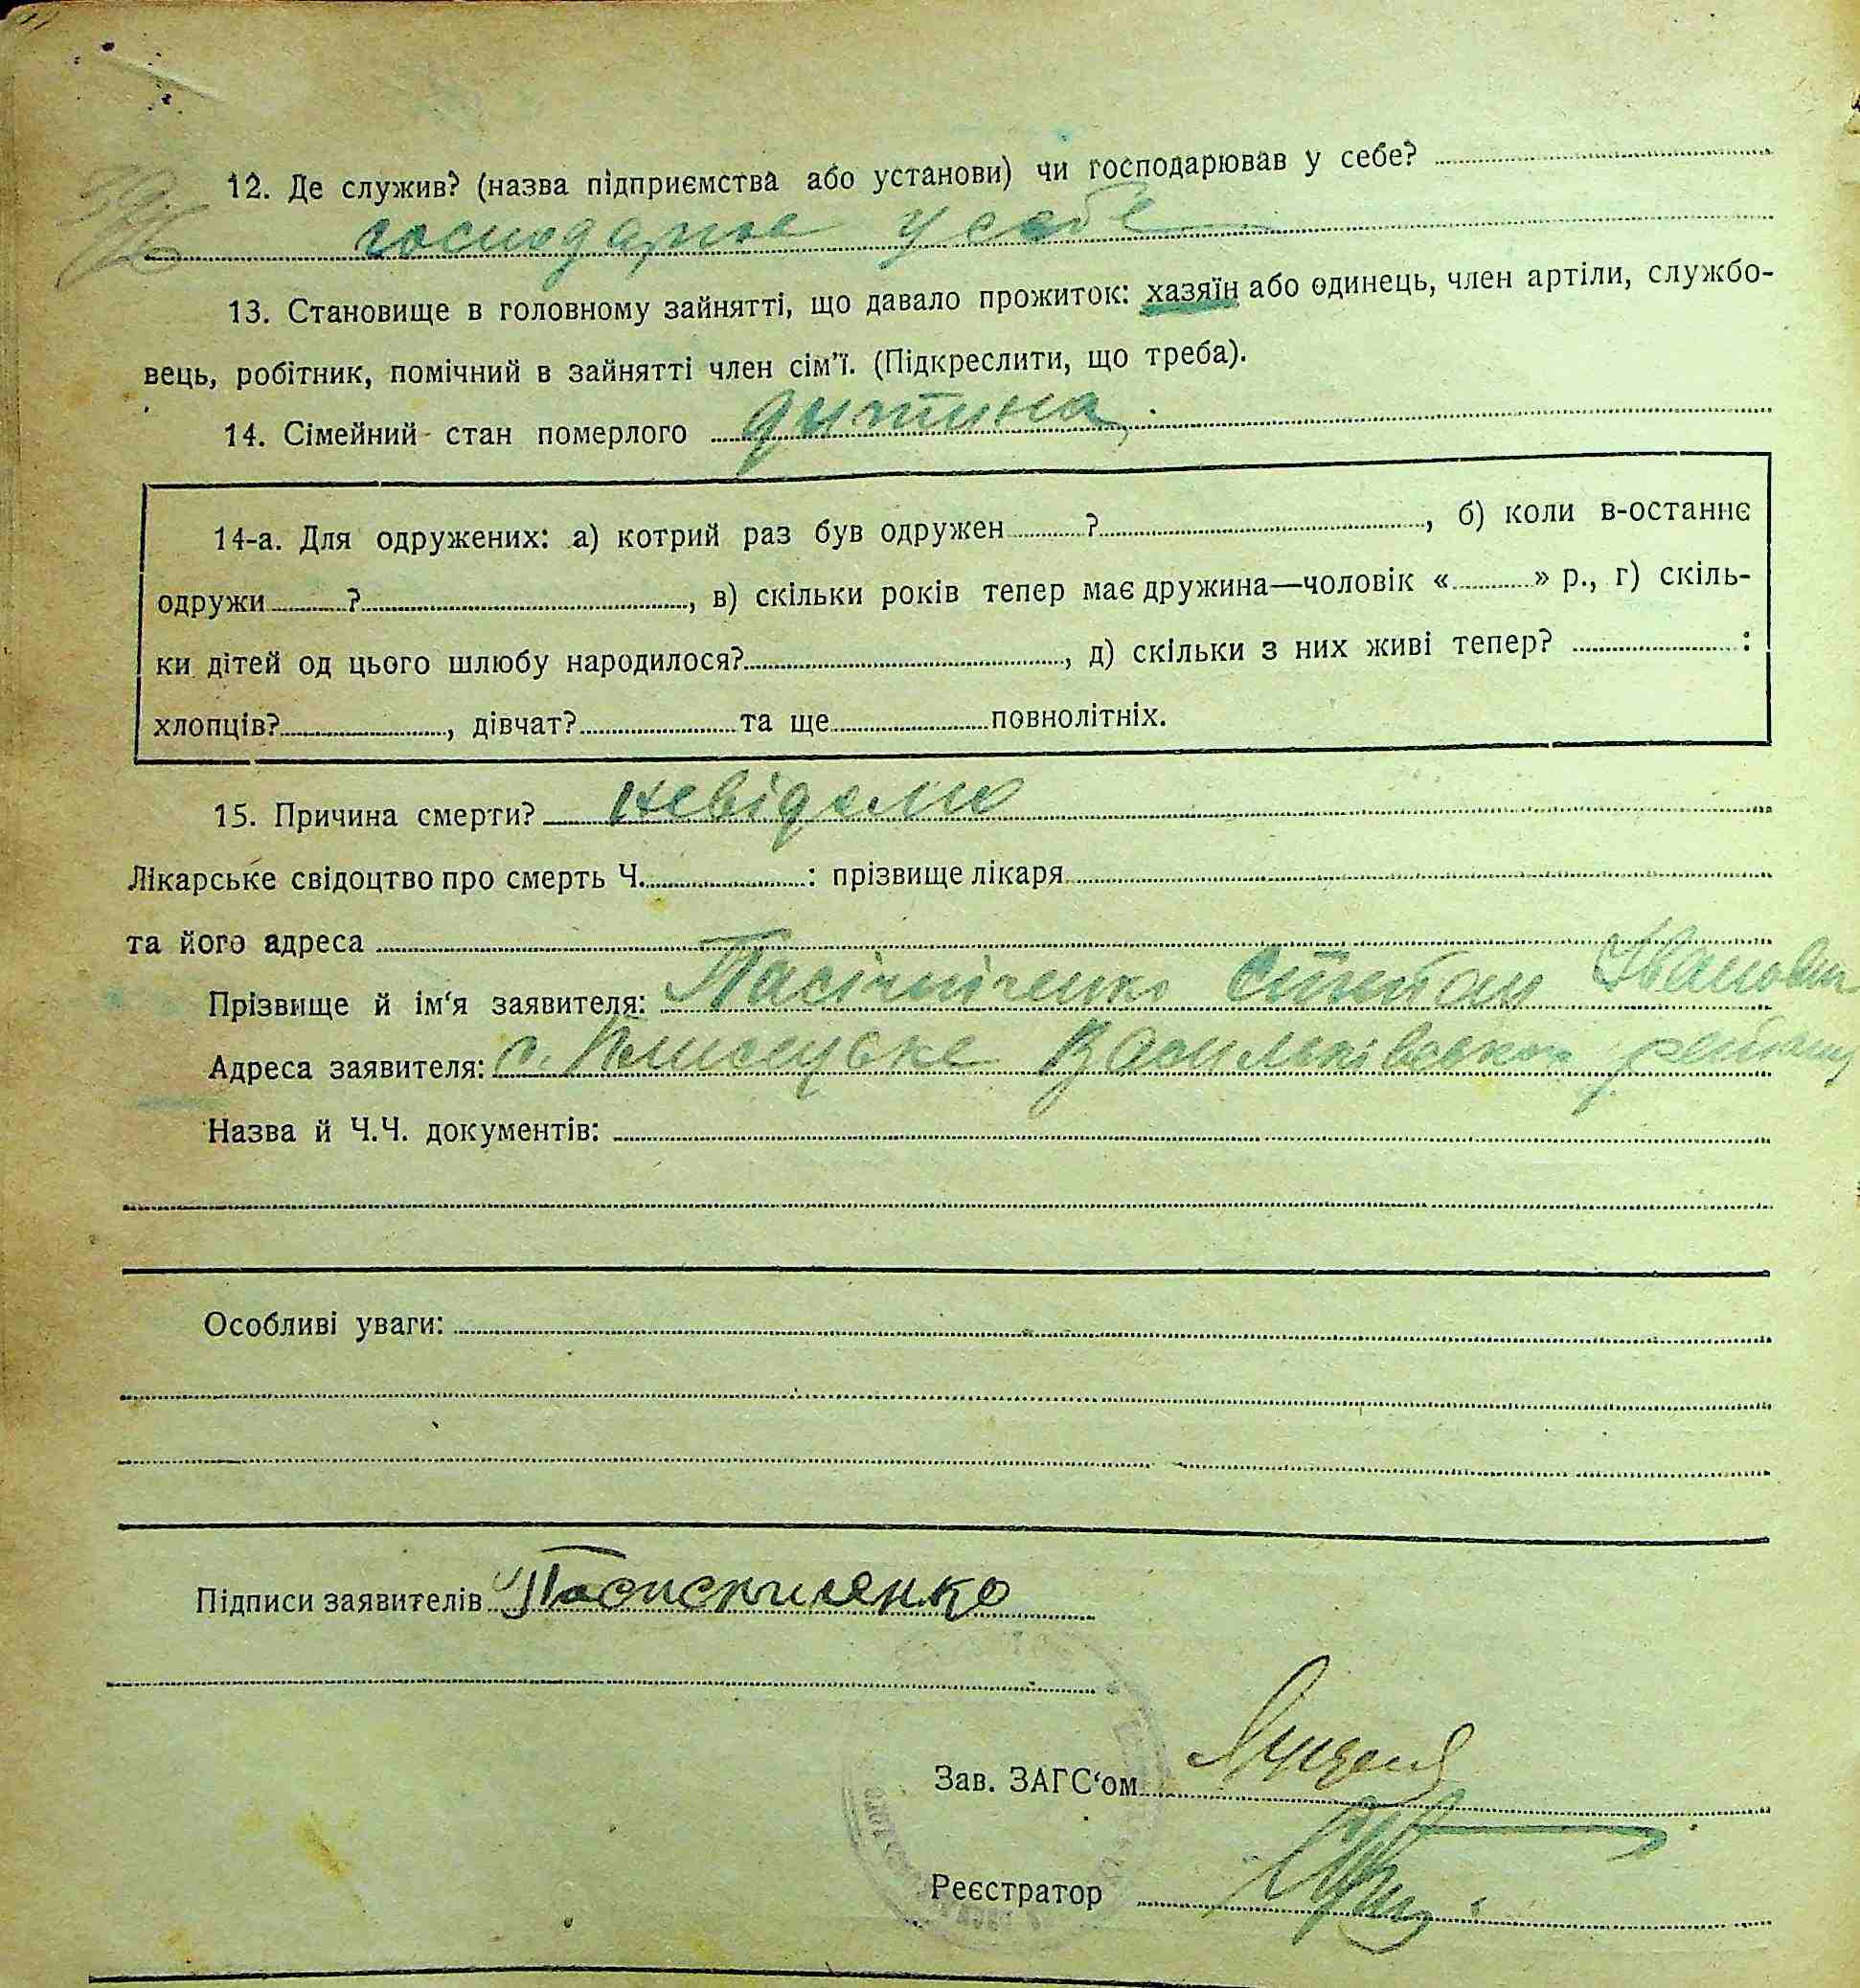 12. Де служив? (назва підприємства або установи) чи господарював у себе?
господарює у себе
13. Становище в головному зайнятті, що давало прожиток: хазяїн або одинець, член артіли, службо-
вець, робітник, помічний в зайнятті член сім'ї. (Підкреслити, що треба).
14. Сімейний стан померлого дитина
14-а. Для одружених: а) котрий раз був одружен ?, б) коли в-останнє
одружи ?, в) скільки років тепер має дружина—чоловік « » р., г) скіль-
ки дітей од цього шлюбу народилося?, д) скільки з них живі тепер? :
хлопців?, дівчат? та ще повнолітніх.
15. Причина смерти? невідомо
Лікарське свідоцтво про смерть Ч. : прізвище лікаря
та його адреса
Прізвище й ім'я заявителя: Пасічниченко Степан Іванович
Адреса заявителя: с. Васильківського району
Назва й Ч.Ч. документів:
Особливі уваги:
Підписи заявителів
Зав. ЗАГС'ом
Реєстратор